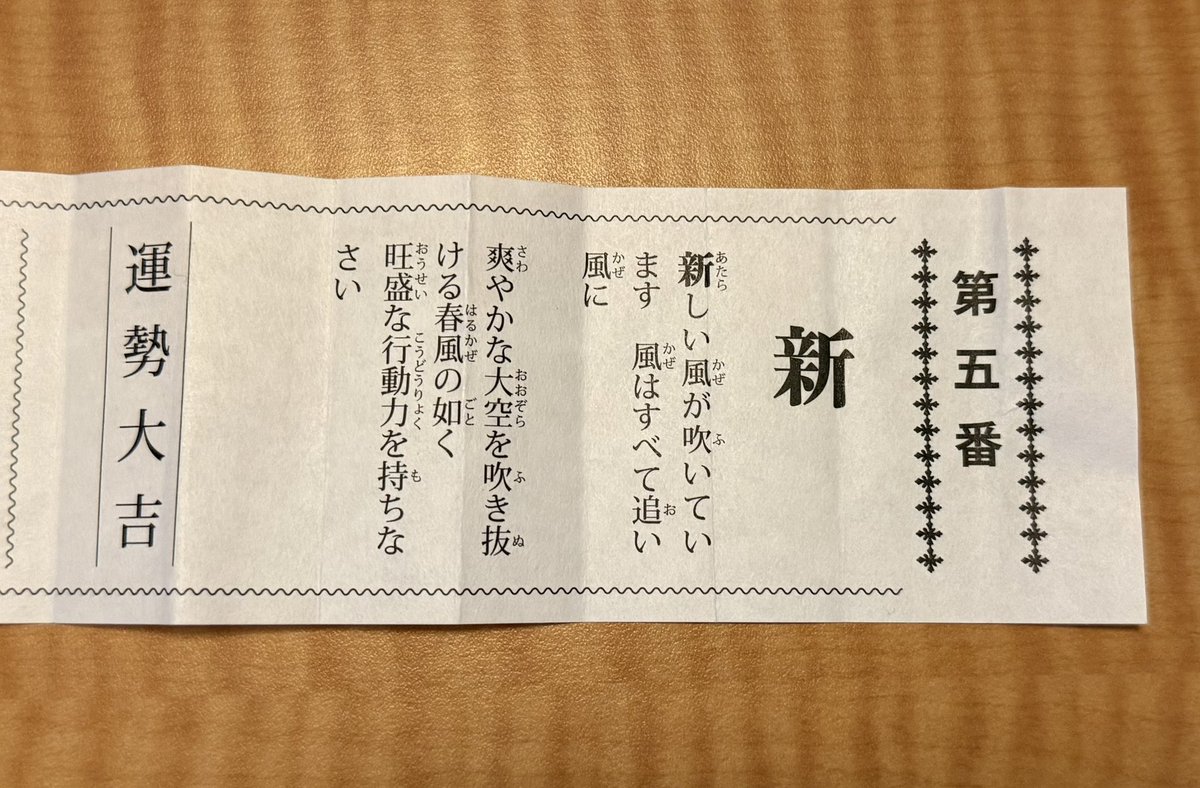 第五番
新
新しい風が吹いてい
ます　風はすべて追い
風に
爽やかな大空を吹き抜
ける春風の如く
旺盛な行動力を持ちな
さい
運勢大吉